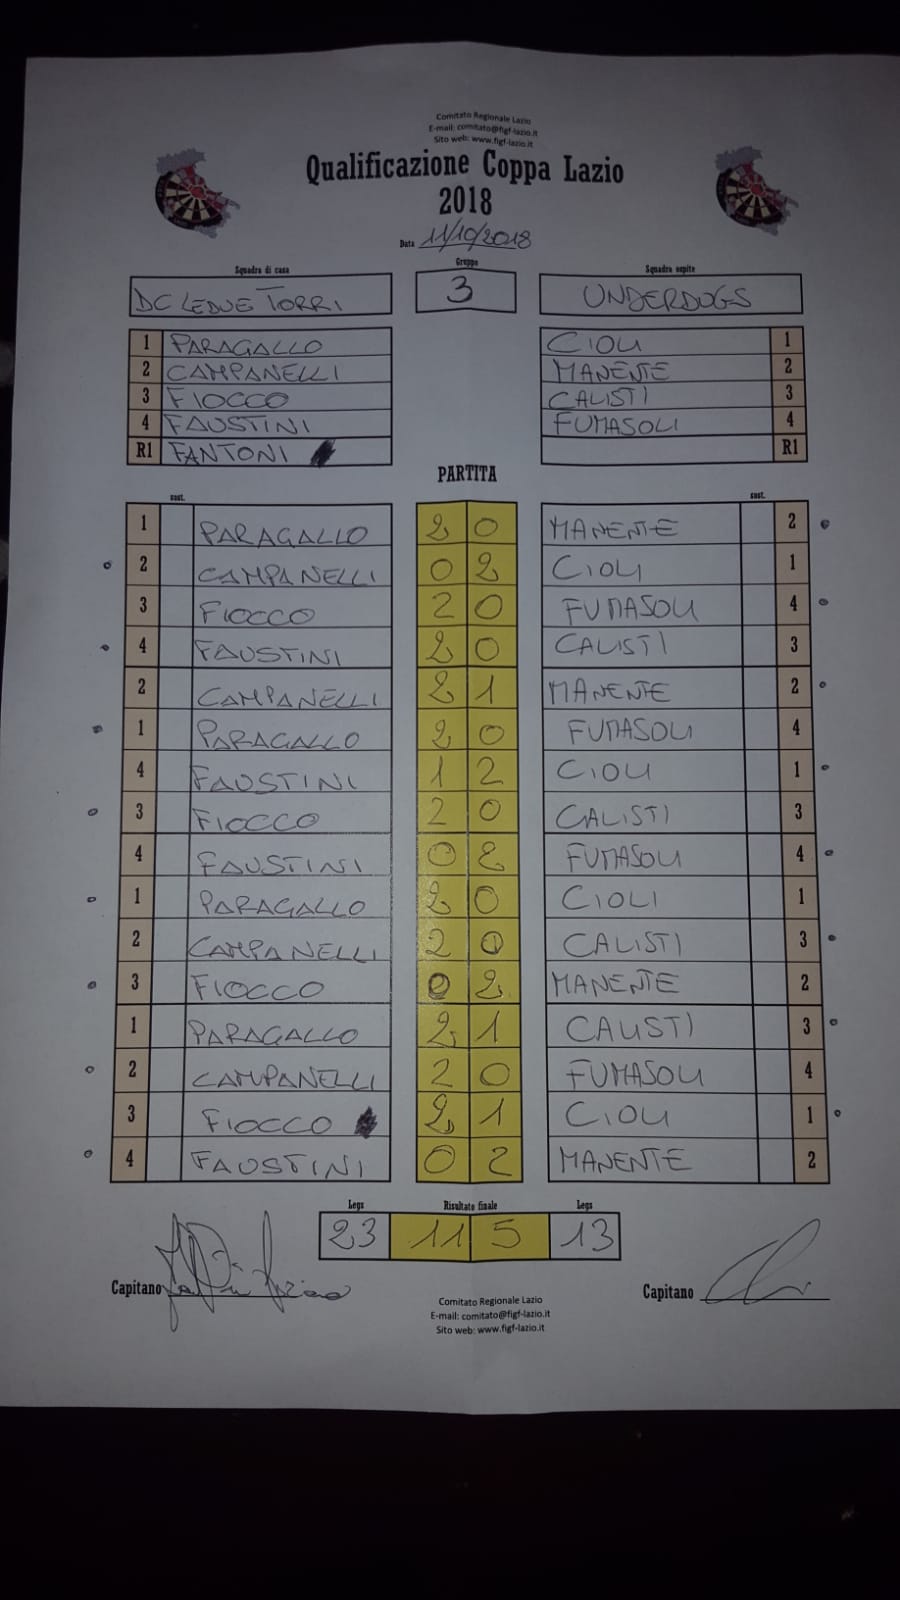 Comitato Regionale Lazio
E-mail: comitato@figf-lazio.it
Sito web: www.figf-lazio.it
Qualificazione Coppa Lazio
2018
Data 11/10/2018
Squadra di casa Gruppo Squadra ospite
DC LE DUE TORRI 3 UNDERDOGS
1 PARAGALLO CIOLI 1
2 CAMPANELLI MANENTE 2
3 FIOCCO CALISTI 3
4 FAUSTINI FUMASOLI 4
R1 FANTONI R1
PARTITA
sost. sost.
1 PARAGALLO 2 0 MANENTE 2
2 CAMPANELLI 0 2 CIOLI 1
3 FIOCCO 2 0 FUMASOLI 4
4 FAUSTINI 2 0 CALISTI 3
2 CAMPANELLI 2 1 MANENTE 2
1 PARAGALLO 2 0 FUMASOLI 4
4 FAUSTINI 1 2 CIOLI 1
3 FIOCCO 2 0 CALISTI 3
4 FAUSTINI 0 2 FUMASOLI 4
1 PARAGALLO 2 0 CIOLI 1
2 CAMPANELLI 2 0 CALISTI 3
3 FIOCCO 0 2 MANENTE 2
1 PARAGALLO 2 1 CALISTI 3
2 CAMPANELLI 2 0 FUMASOLI 4
3 FIOCCO 2 1 CIOLI 1
4 FAUSTINI 0 2 MANENTE 2
Legs Risultato finale Legs
23 11 5 13
Capitano Capitano
Comitato Regionale Lazio
E-mail: comitato@figf-lazio.it
Sito web: www.figf-lazio.it